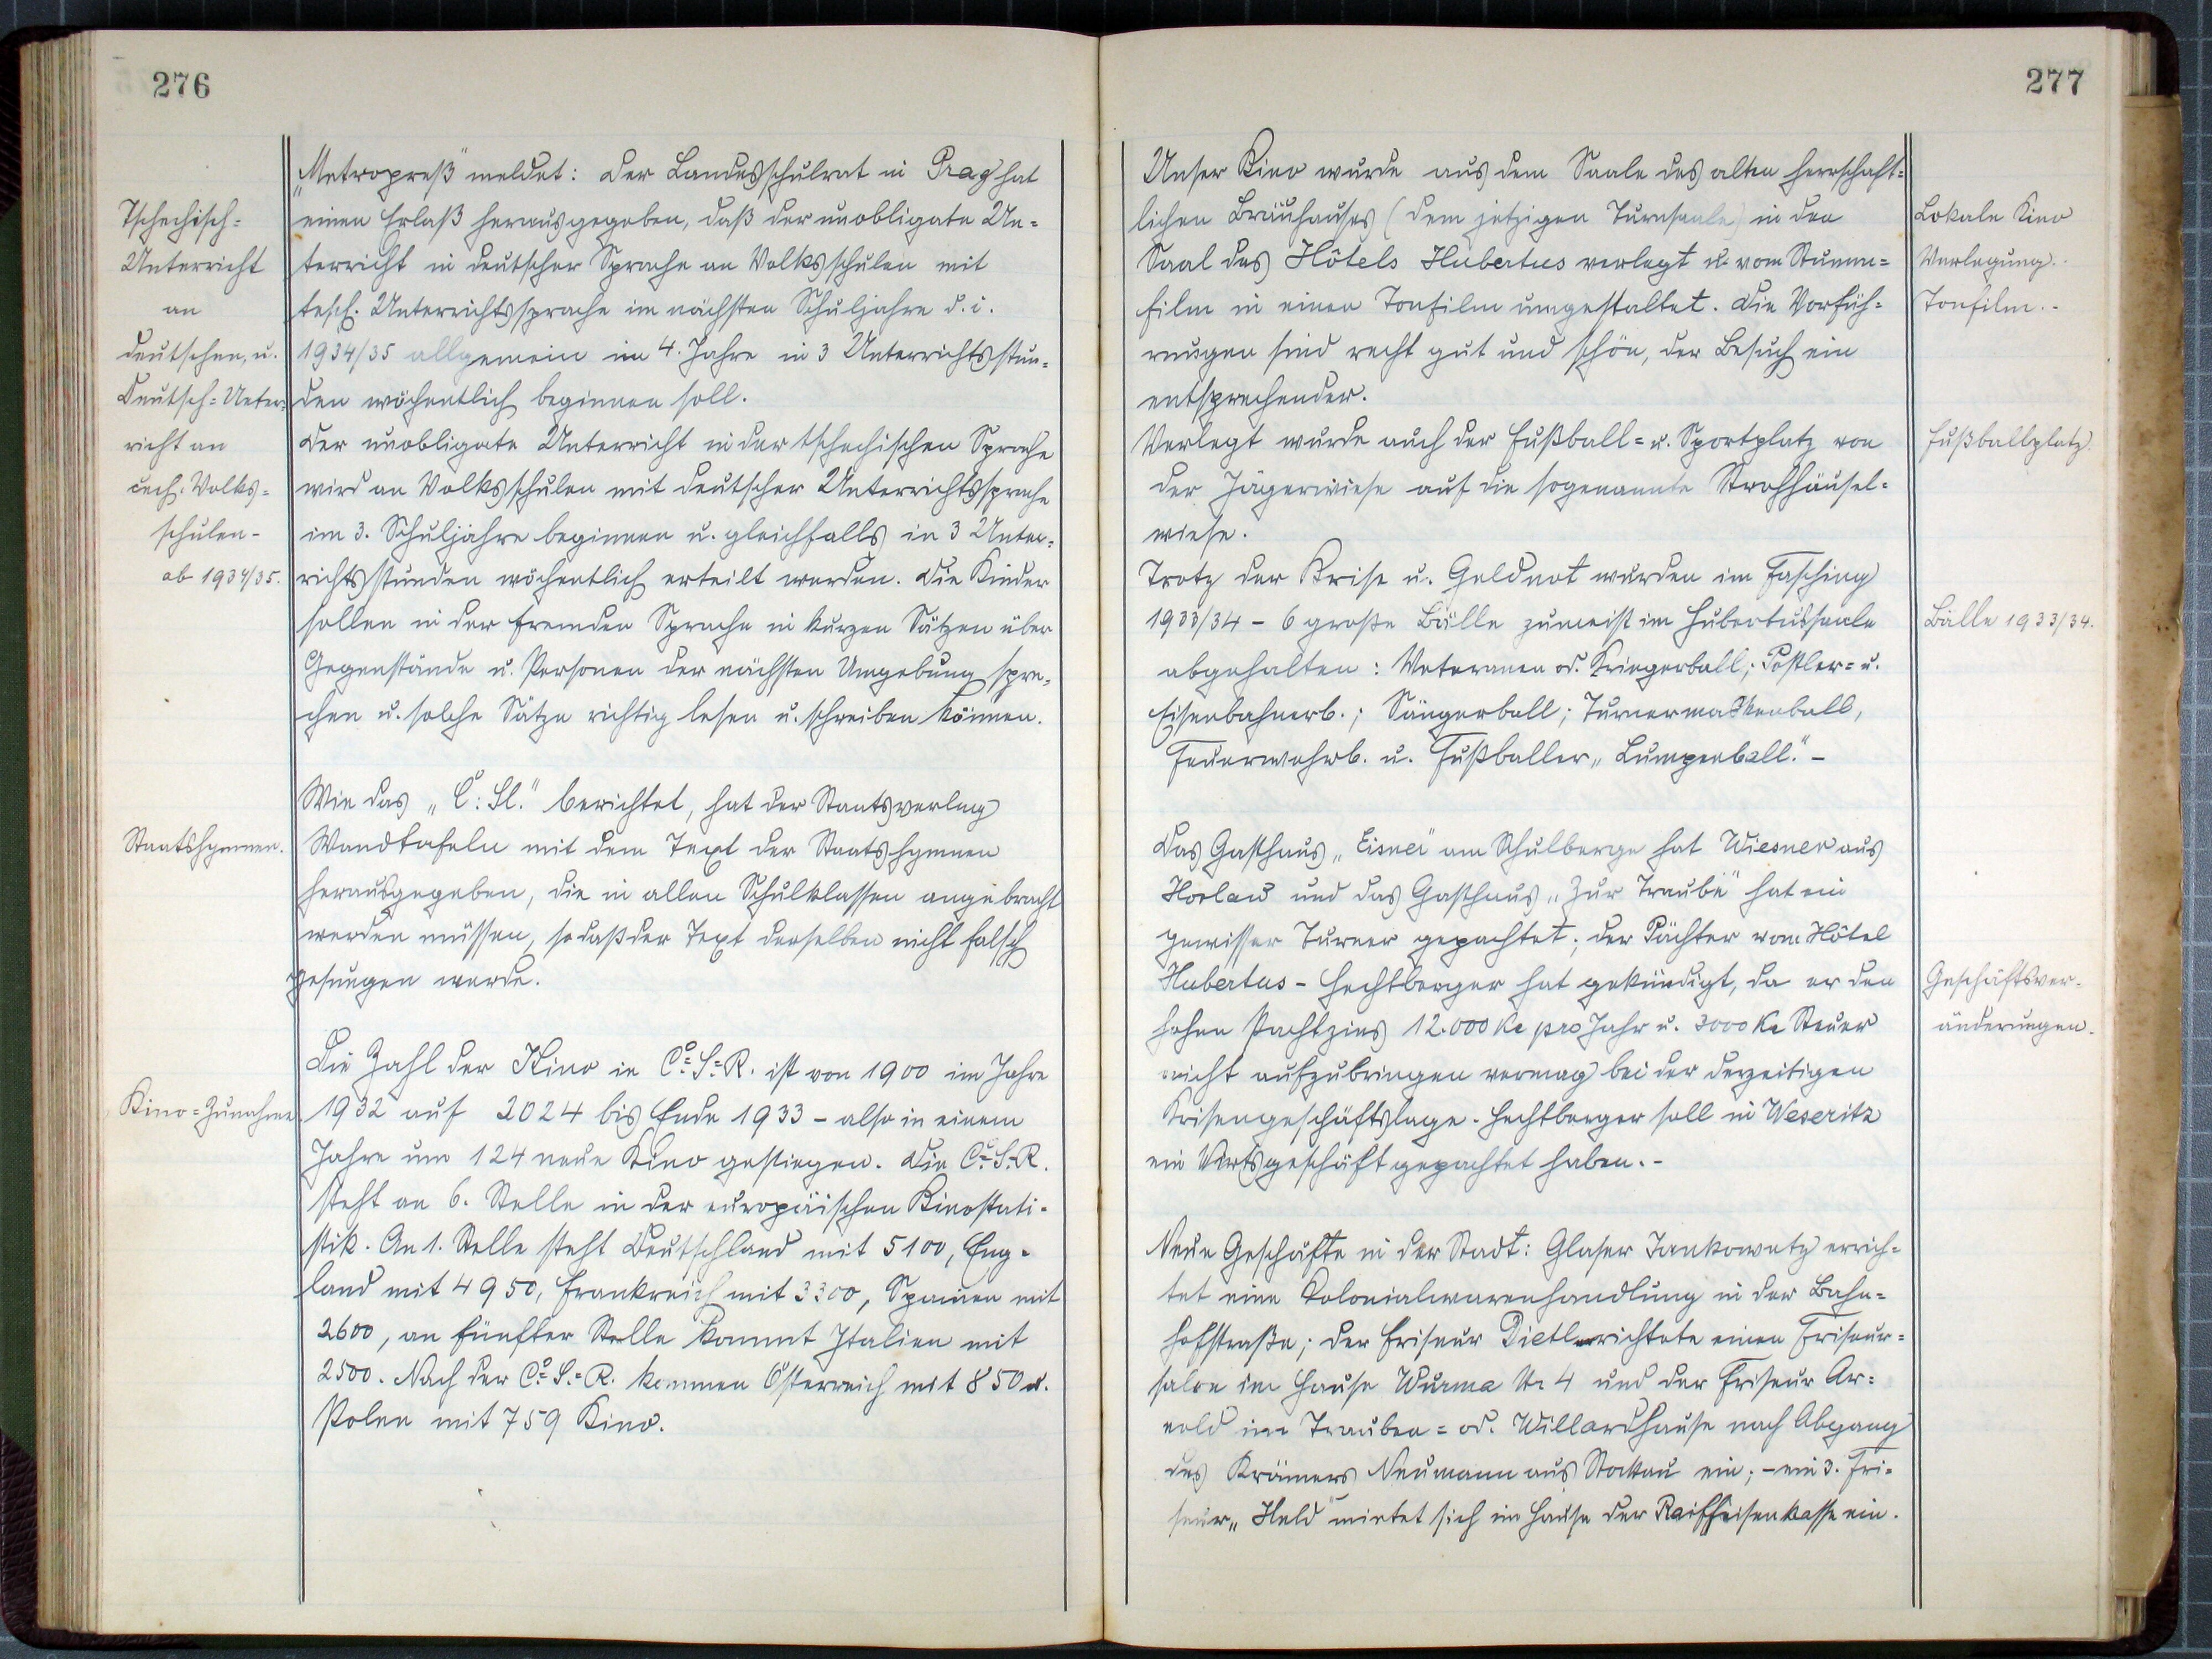 276
Tschechisch=
Unterricht
an
deutschen, u.
Deutsch=Unter=
richt an
čech. Volks=
schulen -
ab 1934/35.
Staatshymnen.
Kino=Zunahme.
„Metropreß" meldet: Der Landesschulrat in Prag hat
einen Erlaß herausgegeben, daß der unobligate Un=
terricht in deutscher Sprache an Volksschulen mit
tsch. Unterrichtssprache im nächsten Schuljahre d. i.
1934/35 allgemein im 4. Jahre in 3 Unterrichtsstun=
den wöchentlich beginnen soll.
Der unobligate Unterricht in der tschechischen Sprache
wird an Volksschulen mit deutscher Unterrichtssprache
im 3. Schuljahre beginnen u. gleichfalls in 3 Unter=
richtsstunden wöchentlich erteilt werden. Die Kinder
sollen in der fremden Sprache in kurzen Sätzen über
Gegenstände u. Personen der nächsten Umgebung spre=
chen u. solche Sätze richtig lesen u. schreiben können.
Wie das „Č: Sl." berichtet, hat der Staatsverlag
Wandtafeln mit dem Text der Staatshymnen
herausgegeben, die in allen Schulklassen angebracht
werden müssen, so daß der Text derselben nicht falsch
gesungen werde.
Die Zahl der Kino in Č=S=R. ist von 1900 im Jahre
1932 auf 2024 bis Ende 1933 - also in einem
Jahre um 124 neue Kino gestiegen. Die Č=S=R.
steht an 6. Stelle in der europäischen Kinostati=
stik. An 1. Stelle steht Deutschland mit 5100, Eng=
land mit 4950, Frankreich mit 3300, Spanien mit
2600, an fünfter Stelle kommt Italien mit
2500. Nach der Č=S.=R. kommen Österreich mit 850 u.
Polen mit 759 Kino.
277
Unser Kino wurde aus dem Saale des alten herrschaft=
lichen Bräuhauses (dem jetzigen Turnsaale) in den
Saal des Hôtels Hubertus verlegt u. vom Stumm=
film in einen Tonfilm umgestaltet. Die Vorfüh=
rungen sind recht gut und schön, der Besuch ein
entsprechender.
Verlegt wurde auch der Fußball= u. Sportplatz von
der Jägerwiese auf die sogenannte Strohhäusel=
wiese.
Trotz der Krise u. Geldnot wurden im Fasching
1933/34 - 6 große Bälle zumeist im Hubertussaale
abgehalten: Veteranen od. Kriegerball; Postler= u.
Eisenbahnerb.; Sängerball; Turnermaskenball,
Feuerwehrb. u. Fußballer „Lumpenball." -
Das Gasthaus „Eisner" am Schulberge hat Wiesner aus
Horlau und das Gasthaus „Zur Traube" hat ein
gewisser Turner gepachtet; der Pächter vom Hôtel
Hubertus - Hechtberger hat gekündigt, da er den
hohen Pachtzins 12.000 Kc pro Jahr u. 3000 Kc Steuer
nicht aufzubringen vermag bei der derzeitigen
Krisengeschäftslage. Hechtberger soll in Weseritz
ein Wirtsgeschäft gepachtet haben. -
Neue Geschäfte in der Stadt: Glaser Jankowetz errich=
tet eine Kolonialwarenhandlung in der Bahn=
hofstraße; der Friseur Dietl errichtete einen Friseur=
salon im Hause Wurma Nr. 4 und der Friseur Ar=
nold im Trauben= od. Willardhause nach Abgang
des Krämers Neumann aus Stockau ein; - ein 3. Fri=
seur „Held" mietet sich im Hause der Raiffeisenkasse ein.
Lokale Kino
Verlegung.
Tonfilm. -
Fußballplatz.
Bälle 1933/34.
Geschäftsver=
änderungen.